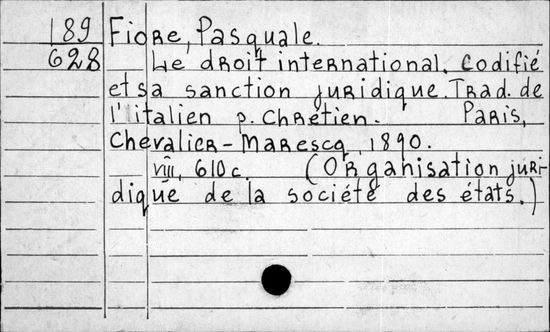 189 Fiore, Pasquale.
628 Le droit international. Codifié
et sa sanction juridique. Trad. de
l'italien p. Chrétien. Paris,
Chevalier-Marescq, 1890.
VIII, 610 c. (Organisation juri-
dique de la société des états.)